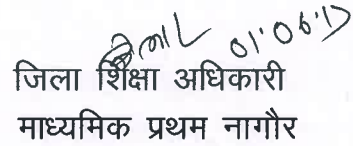 01.06.17
जिला शिक्षा अधिकारी
माध्यमिक प्रथम नागौर